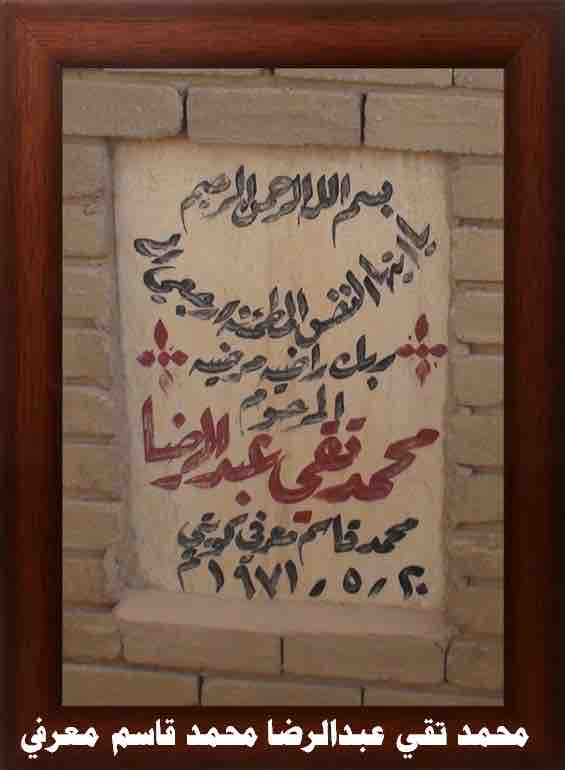 بسم الله الرحمن الرحيم
يا ايتها النفس المطمئنة ارجعي الى
ربك راضيه مرضيه
المرحوم
محمد تقي عبدالرضا
محمد قاسم معرفي كويتي
٢٠ ٫ ٥ ٫ ١٩٧١م
محمد تقي عبدالرضا محمد قاسم معرفي